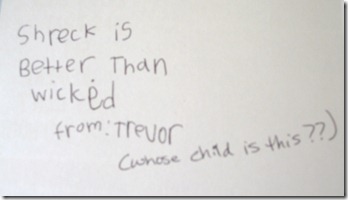 Shreck is
Better Than
wicked
from: Trevor
(whose child is this??)